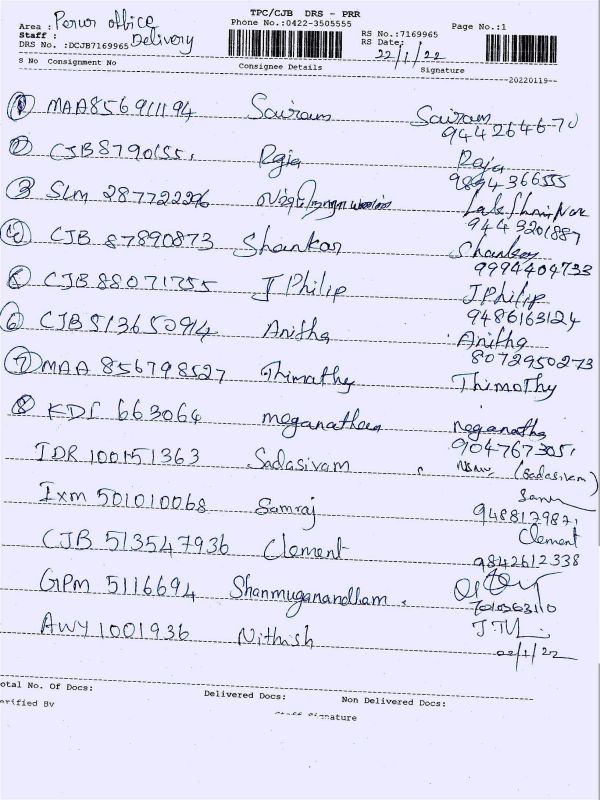 TPC/CJB DRS - PRR
Area : Perur office
Phone No.:0422-3505555
Page No.:1
Staff : Delivery
RS No.:7169965
DRS No. :DCJB7169965
RS Date: 22/1/22
S No Consignment No Consignee Details Signature
--20220119--
1 MAA856911194 Sairam Sairam
9442646670
2 CJB8790155, Raja Raja
9894366555
3 SLM 287722296
9443201887
4 CJB 87890873 Shankar Shankar
9994404733
5 CJB88071755 J Philip J Philip
9486163124
6 CJB513650914 Anitha Anitha
8072950273
7 MAA 856798527 Thimathy Thimothy
8 KDI 663064 meganathan meganatha
904767305,
IDR 100151363 Sadasivam (Sadasivam)
Ixm 501010068 Samraj
9488129871
CJB 513547936 Clement Clement
9842612338
GPM 5116694 Shanmuganandham.
7010363110
AWY 1001936 Nithish
22/1/22
otal No. Of Docs: Delivered Docs: Non Delivered Docs:
erified By
Staff Signature